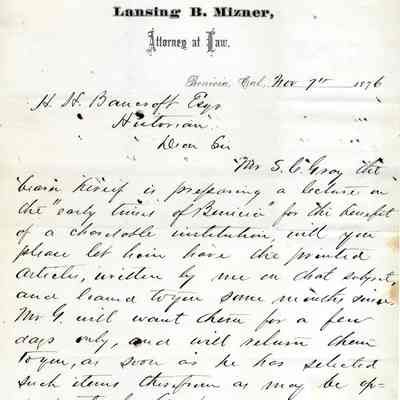 Lansing B. Mizner,
Attorney at Law.
Benicia, Cal., Nov 7th 1876
H. H. Bancroft Esqr
Historian.
Dear Sir
Mr S. C. Gray the
himself is preparing a lecture on
the "early times of Benicia" for the benefit
of a charitable institution, will you
please let him have the printed
articles, written by me on that subject,
and loaned to you some months since.
Mr G. will want them for a few
days only, and will return them
to you, as soon as he has selected
such items therefrom as may be ap=